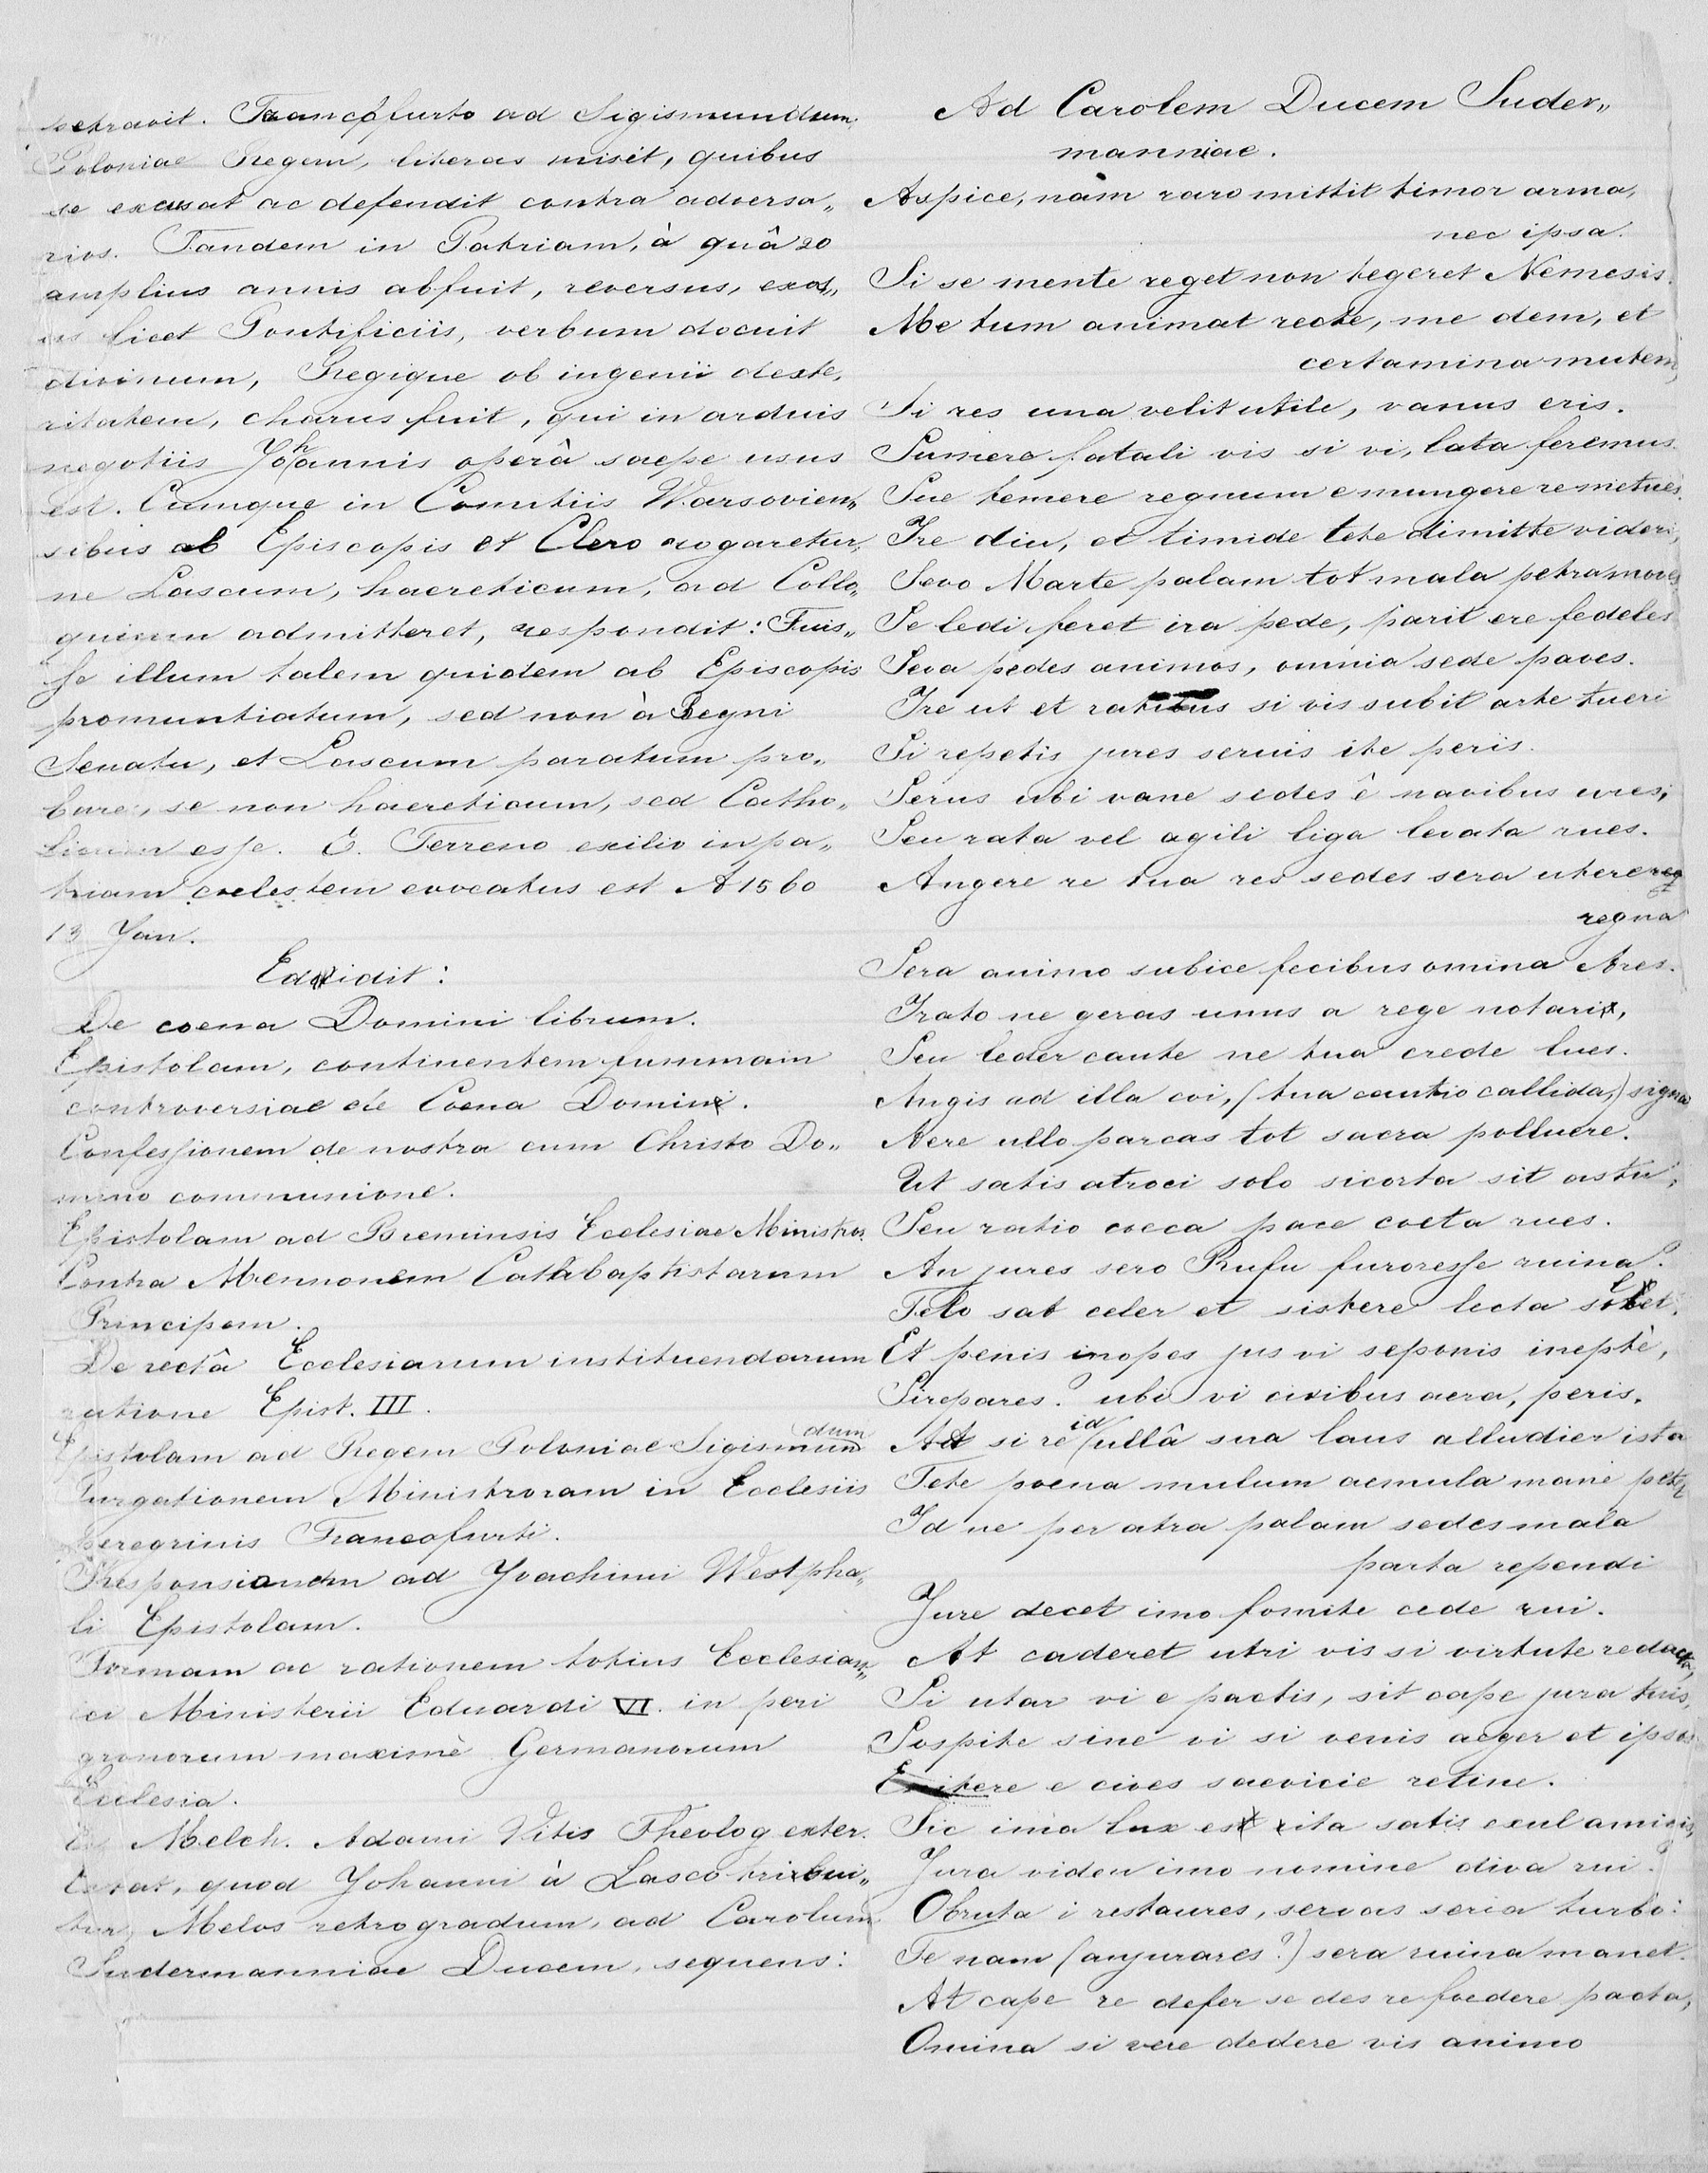 petravit. Francofurto ad Sigismundum,
Poloniae Regem, literas misit, quibus
se excusat ac defendit contra adversa„
rios. Tandem in Patriam, à quâ 20
amplius annis abfuit, reversus, exos„
us licet Pontificiis, verbum docuit
divinum, Regique ob ingenii dexte„
ritatem, charus fuit, qui in arduis
negotiis Johannis operâ saepe usus
est. Cumque in Comitiis Warsovien„
sibus ab Episcopis et Clero rogaretur,
ne Lascum, haereticum, ad Collo„
quium admitteret, respondit: Fuis„
se illum talem quidem ab Episcopis
promuntiatum, sed non à Regni
Senatu, et Lascum paratum pro„
bare, se non haereticum, sed Catho„
licum esse. E. Terreno exilio in pa„
triam coelestem evocatus est A 1560
13 Jan.
Edidit:
De coena Domini librum.
Epistolam, continentem summam
controversiae de Coena Domini.
Confessionem de nostra cum Christo Do„
mino communione.
Epistolam ad Bremensis Ecclesiae Ministros.
Contra Mennonem Cathabaptistarum
Principem.
De rectâ Ecclesiarum instituendarum
ratione Epist. III.
Epistolam ad Regem Poloniae Sigismundum
Purgationem Ministroram in Ecclesiis
peregrinis Francofurti.
Responsionem ad Joachimi Westpha„
li Epistolam.
Formam ac rationem totius Ecclesiast„
ici Ministerii Eduardi VI. in peri
gronorum maximè Germanorum
Ecclesia.
Melch. Adami Vitis Theolog exter.
Extat, quod Johanni à Lasco tribui„
tur, Melos retrogradum, ad Carolum
Sudermanniae Ducem, sequens:
Ad Carolem Ducem Suder„
manniae.
Aspice, nam raro mittit timor arma,
nec ipsa.
Si se mente reget non tegeret Nemesis.
Me tum animat recte, me dem, et
certamina mutem,
Si res una velit utile, vanus eris.
Sumere fatali vis si vi, lata feremus.
Sue temere regnum emungere re metues.
Ire diu, et timide tete dimitte videri,
Sevo Marte palam tot mala petra moves
Se ledi feret ira pede, parit ere fedeles
Seva pedes animos, omnia sede paves.
Ire ut et ratibus si vis subit arte tueri
Si repetis jures servis ite peris.
Serus ubi vane sedes ê navibus ures;
Seu rata vel agili liga levata rues.
Augere re tua res sedes sera utere reg
regna
Sera animo subice fecibus omina Ares.
Irato ne geras unus a rege notari,
Seu leder caute ne tua crede lues.
Augis ad illa coi, (tua cautio callida,) signa
Nere ullo parcas tot sacra polluere.
Ut satis atroci solo sicorta sit astu,
Seu ratio coeca pace coeta rues.
An jures sero Rufu furoresse ruina?
Telo sat celer et sistere lecta solet.
Et penis inopes jus vi seponis ineptè,
Sirepares? ubi vi civibus aera, peris.
At si re id ullâ sua laus alludier ista
Tete poena mulum aemula mane petet
Id ne per atra palam sedes mala
parta rependi
Jure decet imo fomite cede rui.
At caderet utri vis si virtute redacta,
Si utar vi e pactis, sit cape jura tuis,
Sospite sine vi si venis aeger et ipsos
Eripere e cives saevicie retine.
Sic ima lux est ita satis exul amicis,
Jura viden imo nomine diva rui?
Obruta i restaures, servas seria turbo:
Te nam (an jurares?) sera ruina manet.
At cape re defer se des re foedere pacta,
Omina si vere dedere vis animo